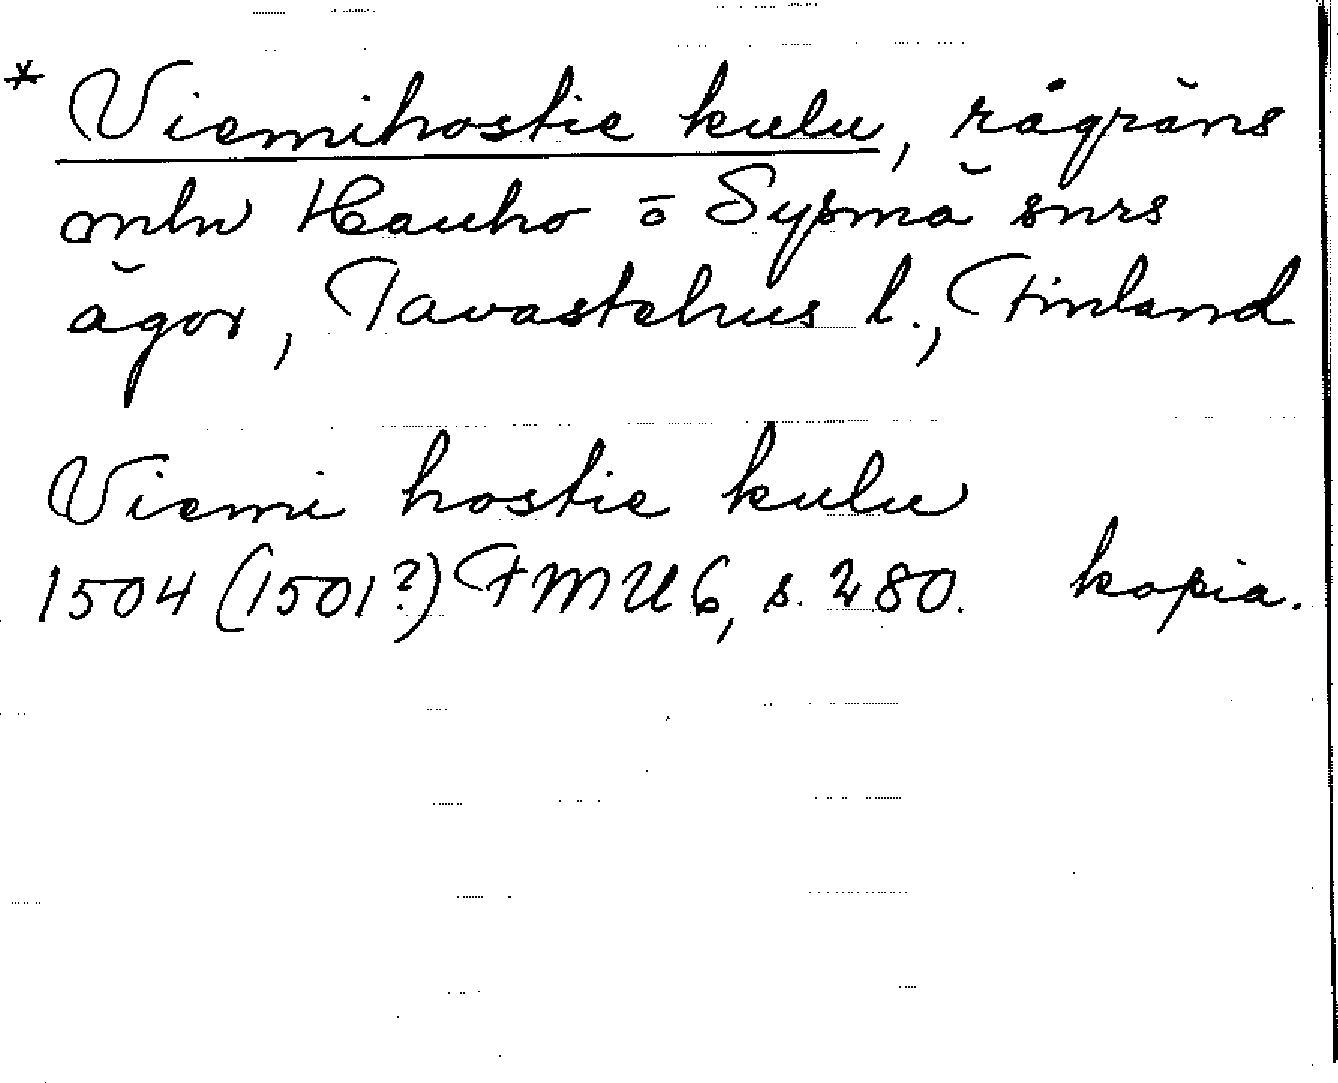 * Viemihostie kulu, rågräns
mln Hauho o Sysmä snrs
ägor, Tavastehus l., Finland
Viemi hostie kulu
1504 (1501?) FMU 6, s. 280. kopia.